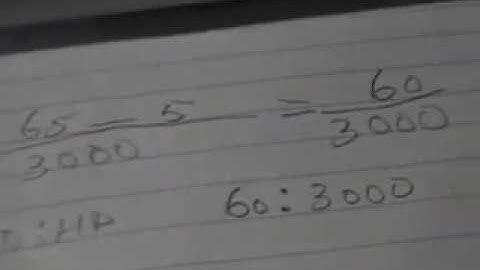 65 - 5 = 60
3000 3000
60 : 3000